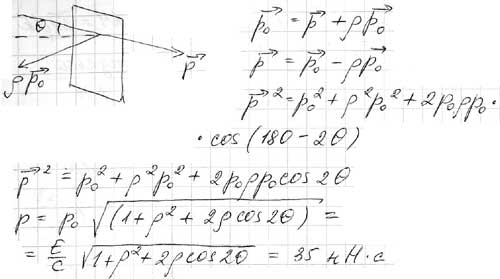 θ
p⃗
ρp⃗₀
p⃗₀ = p⃗ + ρp⃗₀
p⃗ = p⃗₀ − ρp⃗₀
p⃗² = p₀² + ρ²p₀² + 2p₀ρp₀ ·
· cos(180 − 2θ)
p⃗² = p₀² + ρ²p₀² + 2p₀ρp₀cos2θ
p = p₀ √(1 + ρ² + 2ρcos2θ) =
= E/c √1 + ρ² + 2ρcos2θ = 35 нН·с